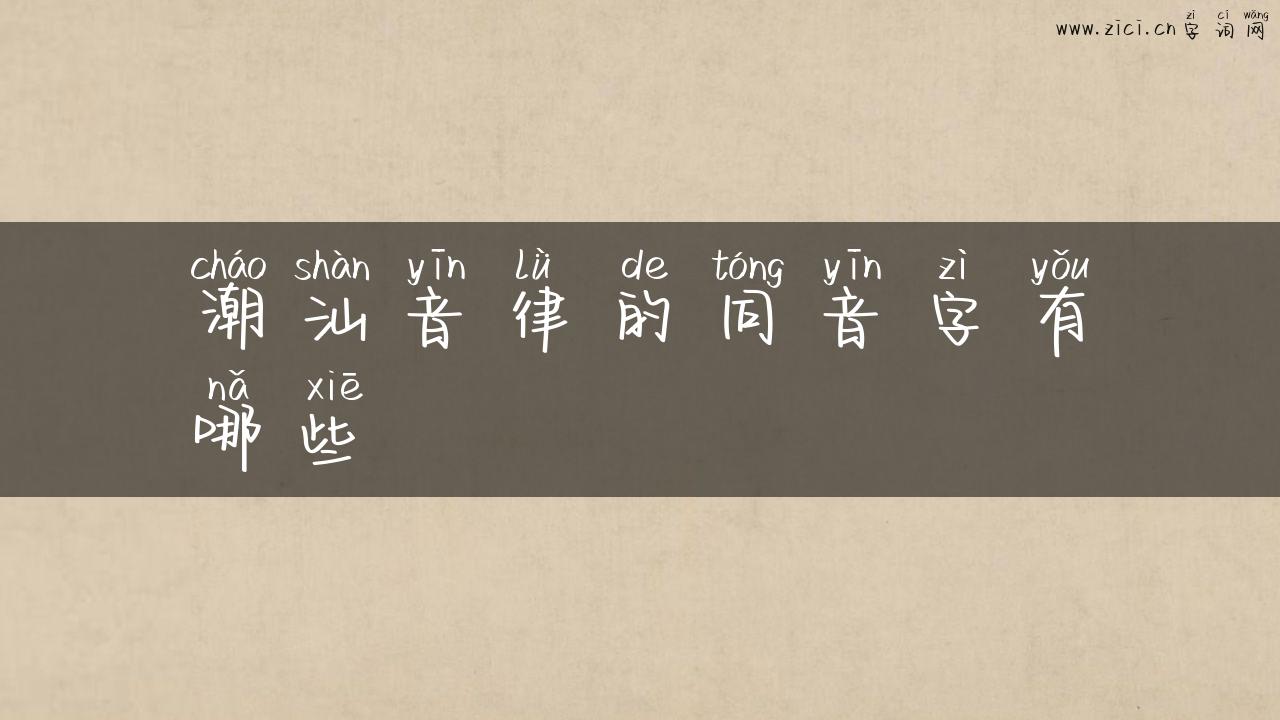 zì cí wǎng
www.zici.cn 字词网
cháo shàn yīn lǜ de tóng yīn zì yǒu
潮汕音律的同音字有
nǎ xiē
哪些